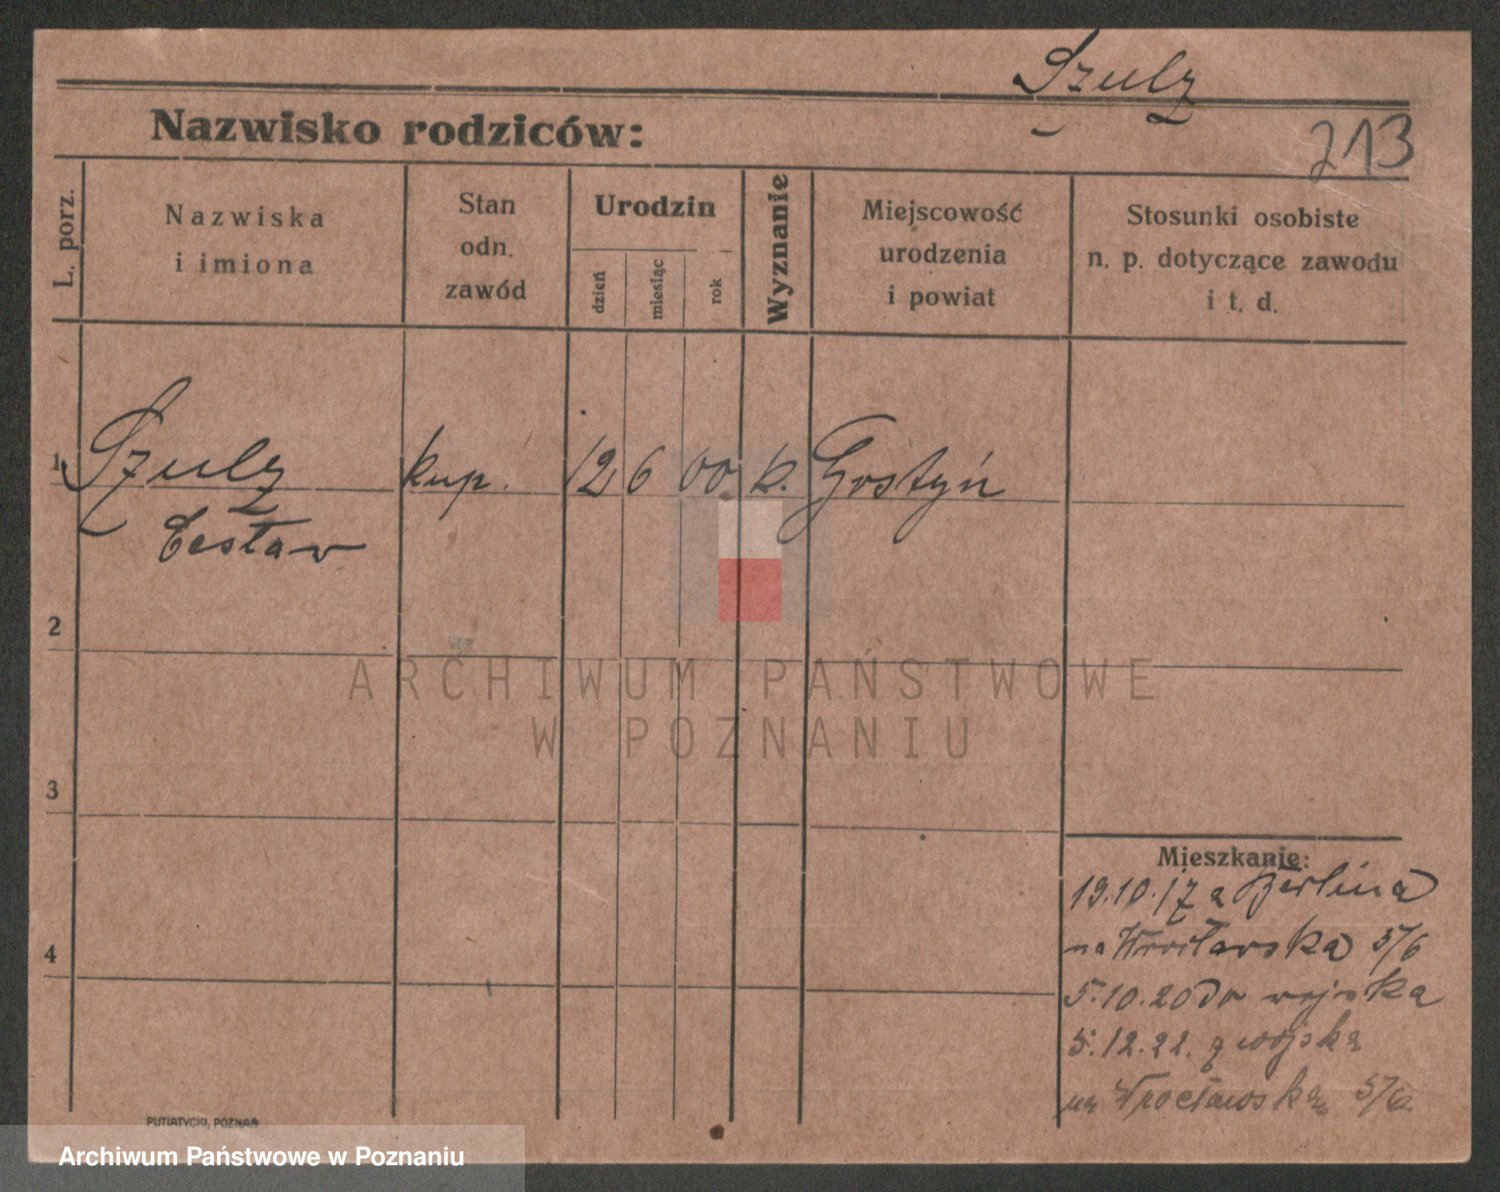 Szulz
Nazwisko rodziców:
213
L. porz.
Nazwiska
i imiona
Stan
odn.
zawód
Urodzin
dzień
miesiąc
rok
Wyznanie
Miejscowość
urodzenia
i powiat
Stosunki osobiste
n. p. dotyczące zawodu
i t. d.
1 Szulz kup. 12 6 00 k. Gostyń
Czesław
2
3
4
Mieszkanie:
19.10.17 z Berlina
na Wrocławska 5/6
5.10.20 do wojska
5.12.22. z wojska
na Wrocławską 5/6.
PUTIATYCKI, POZNAŃ
ARCHIWUM PAŃSTWOWE
W POZNANIU
Archiwum Państwowe w Poznaniu